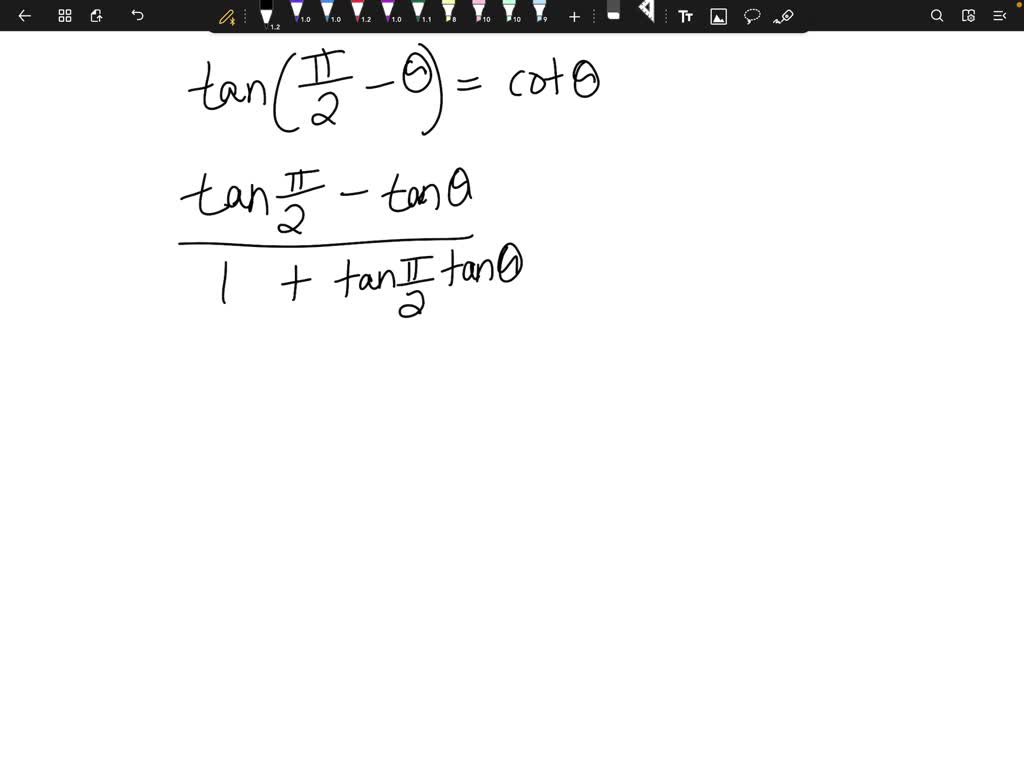 1.2 1.0 1.0 1.2 1.0 1.1 8 10 10 9 Tт
tan(π/2 - θ) = cot θ
tan π/2 - tan θ
1 + tan π/2 tan θ